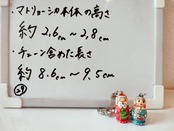 ・マトリョーシカ本体の高さ
約2.6cm~2.8cm
・チェーン含めた長さ
約8.6cm~9.5cm